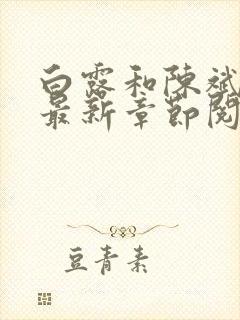 白露和陈斌
最新章节阅
豆青素